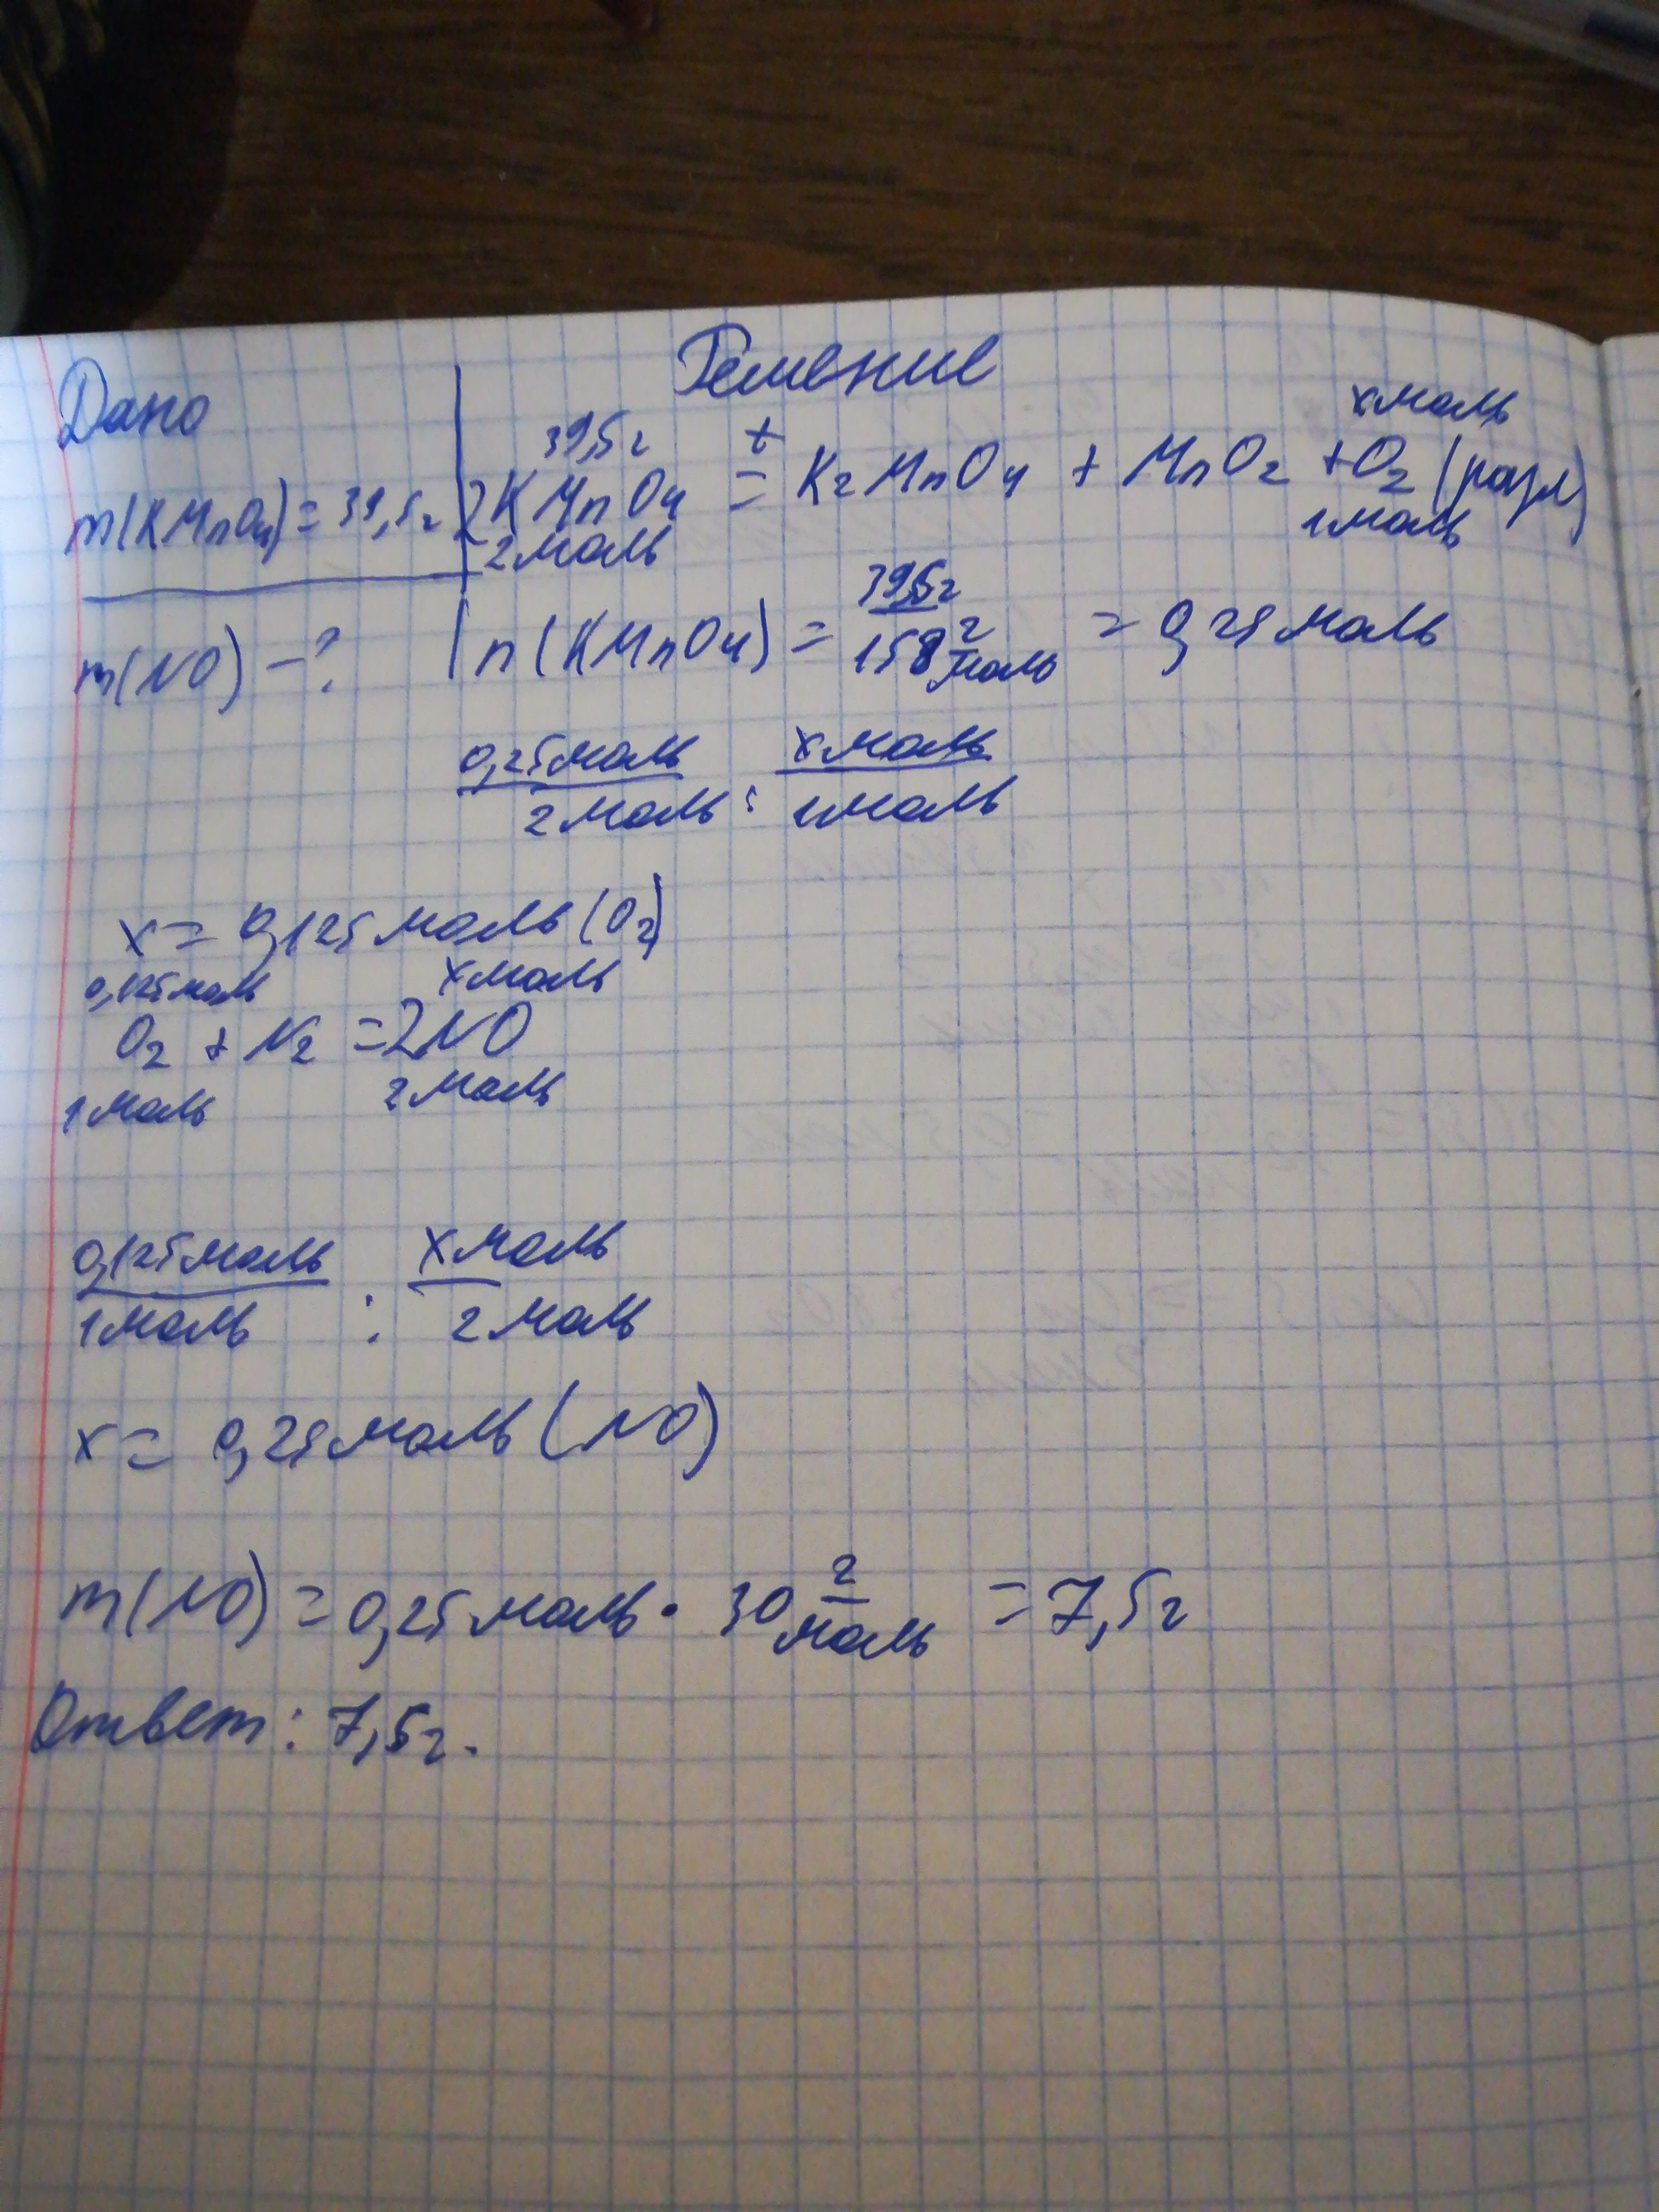 Дано
Решение
39,5г t х моль
m(KMnO4) = 39,5г 2KMnO4 = K2MnO4 + MnO2 + O2 (разл)
2 моль 1 моль
m(NO) - ?
n(KMnO4) = 39,5г / 158 г/моль = 0,25 моль
0,25 моль / 2 моль : х моль / 1 моль
х = 0,125 моль (O2)
0,125 моль х моль
O2 + N2 = 2NO
1 моль 2 моль
0,125 моль / 1 моль : х моль / 2 моль
х = 0,25 моль (NO)
m(NO) = 0,25 моль · 30 г/моль = 7,5г
Ответ: 7,5г.